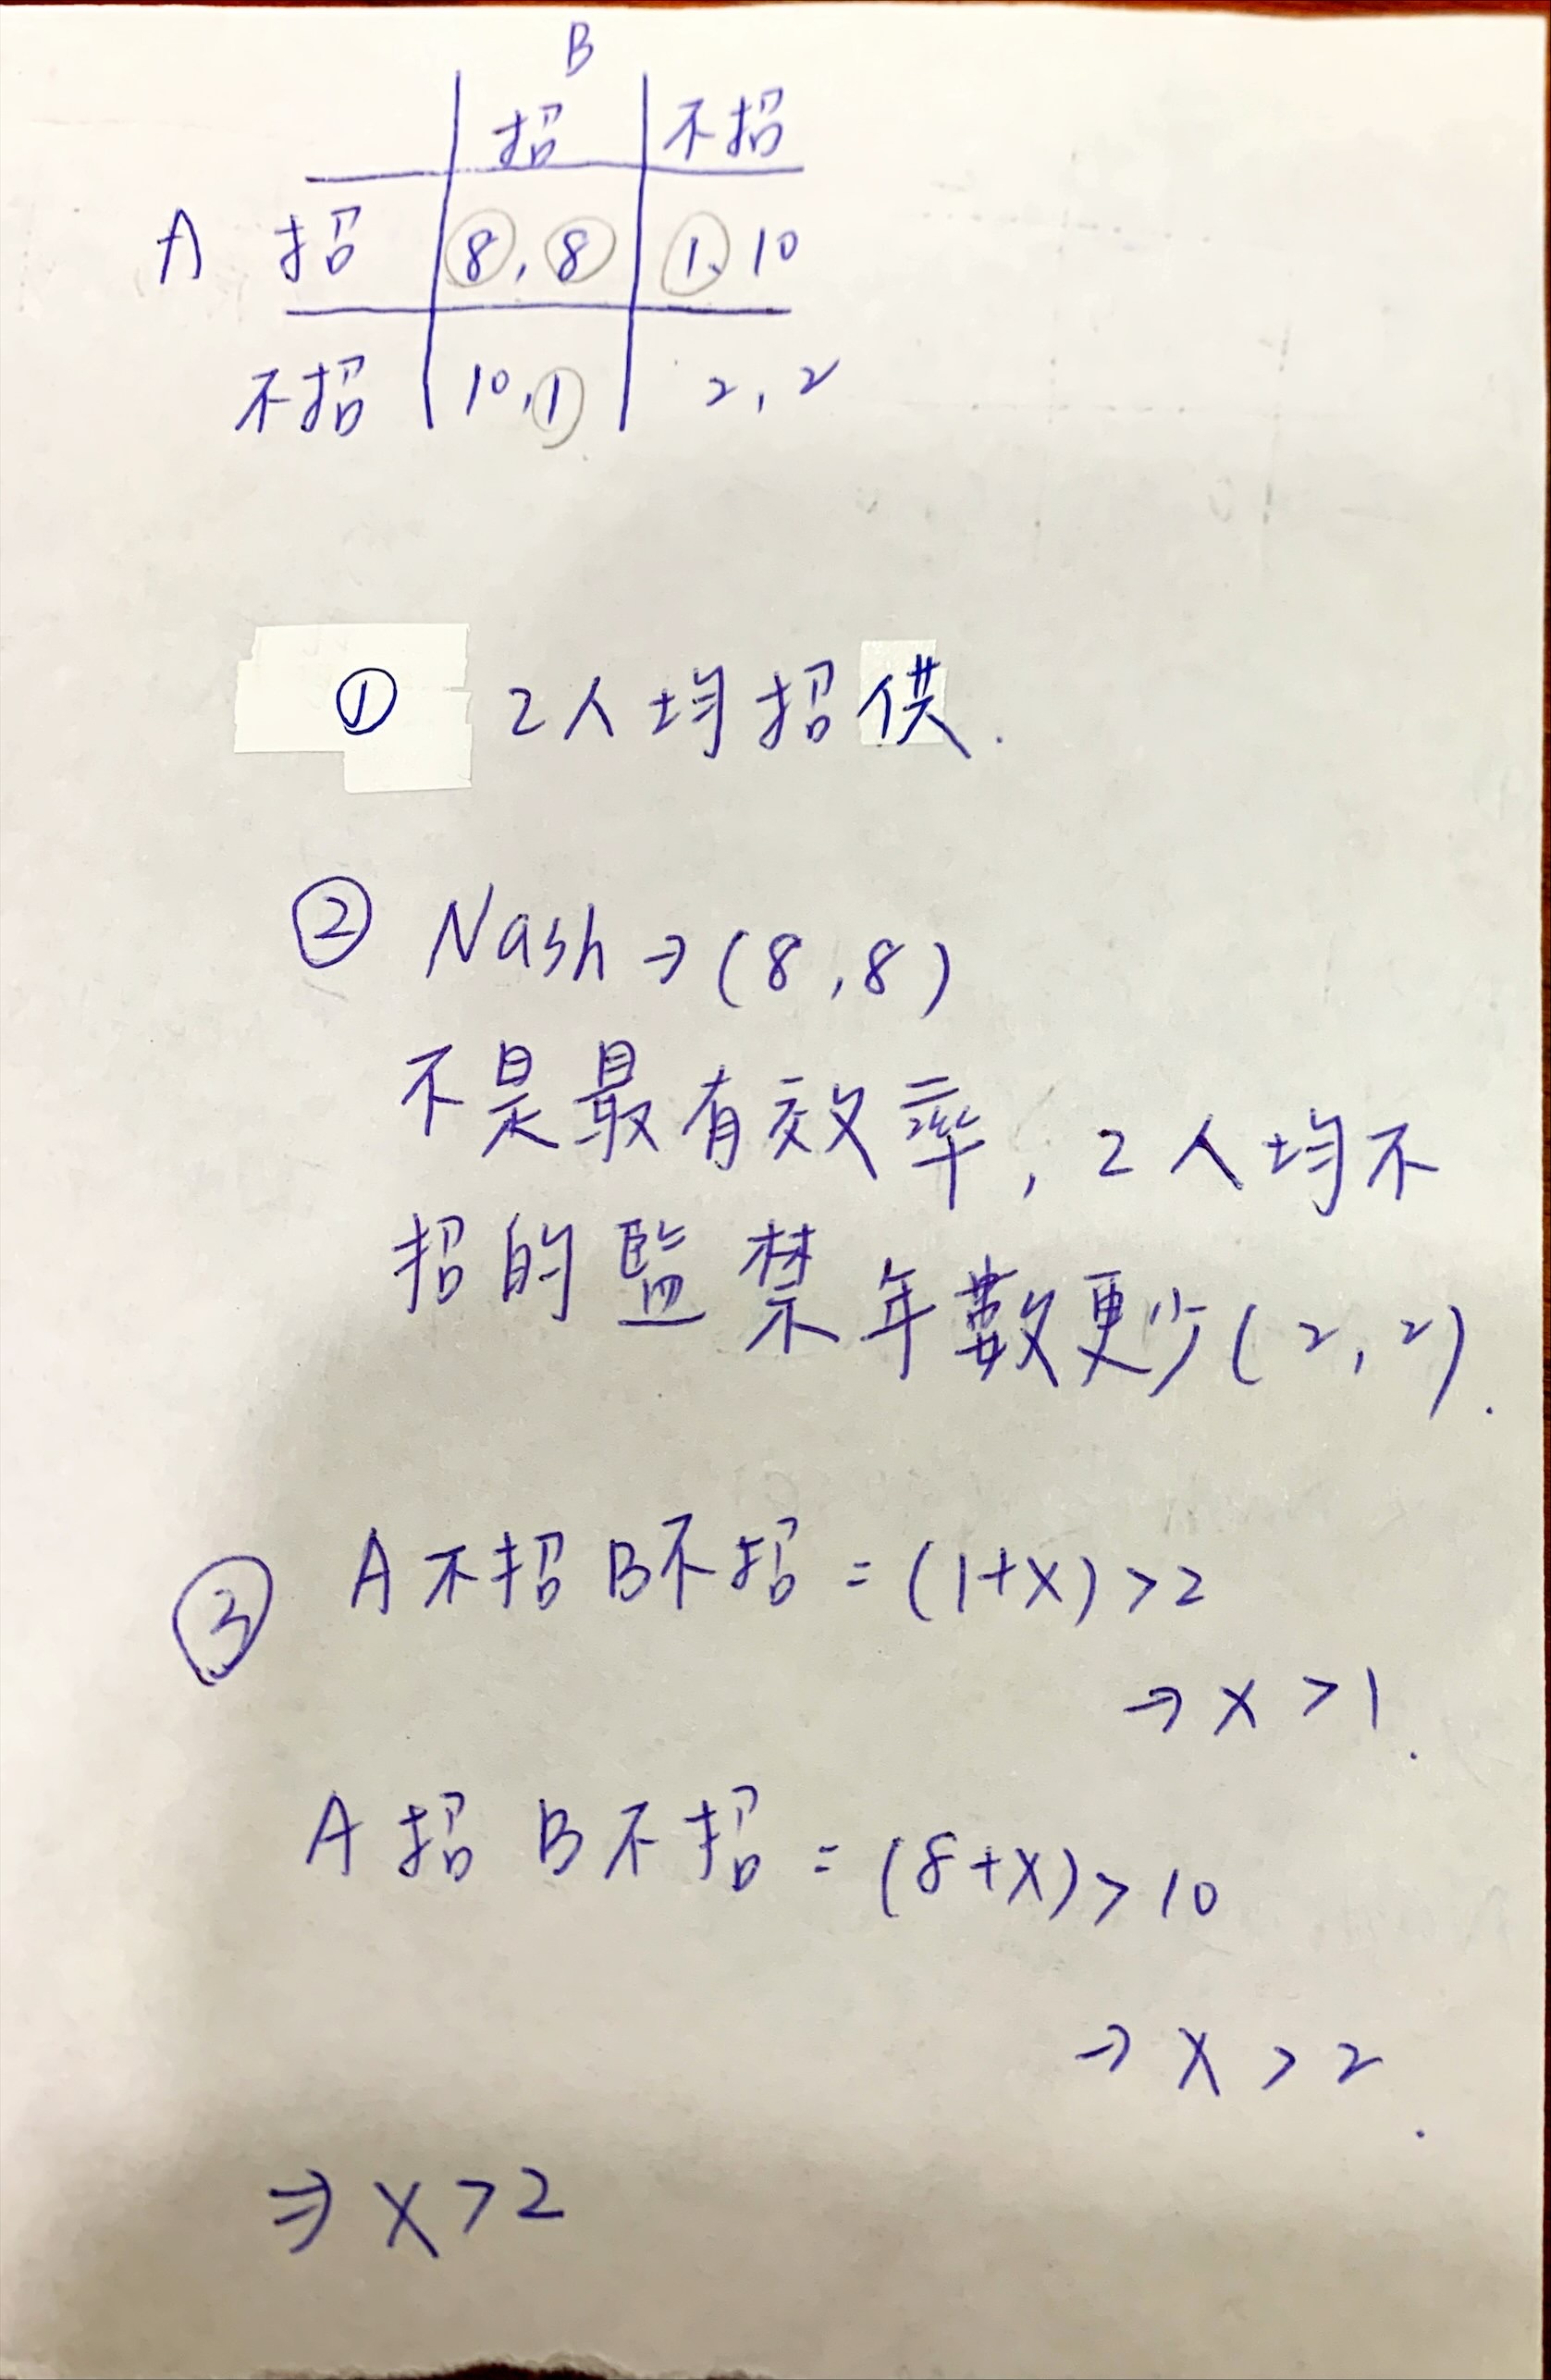 B
招 不招
A 招 8, 8 1, 10
不招 10, 1 2, 2
① 2人均招供.
② Nash → (8, 8)
不是最有效率, 2人均不
招的監禁年數更少(2, 2).
③ A不招 B不招 = (1+X) > 2
→ X > 1.
A招 B不招 = (8+X) > 10
→ X > 2.
⇒ X > 2